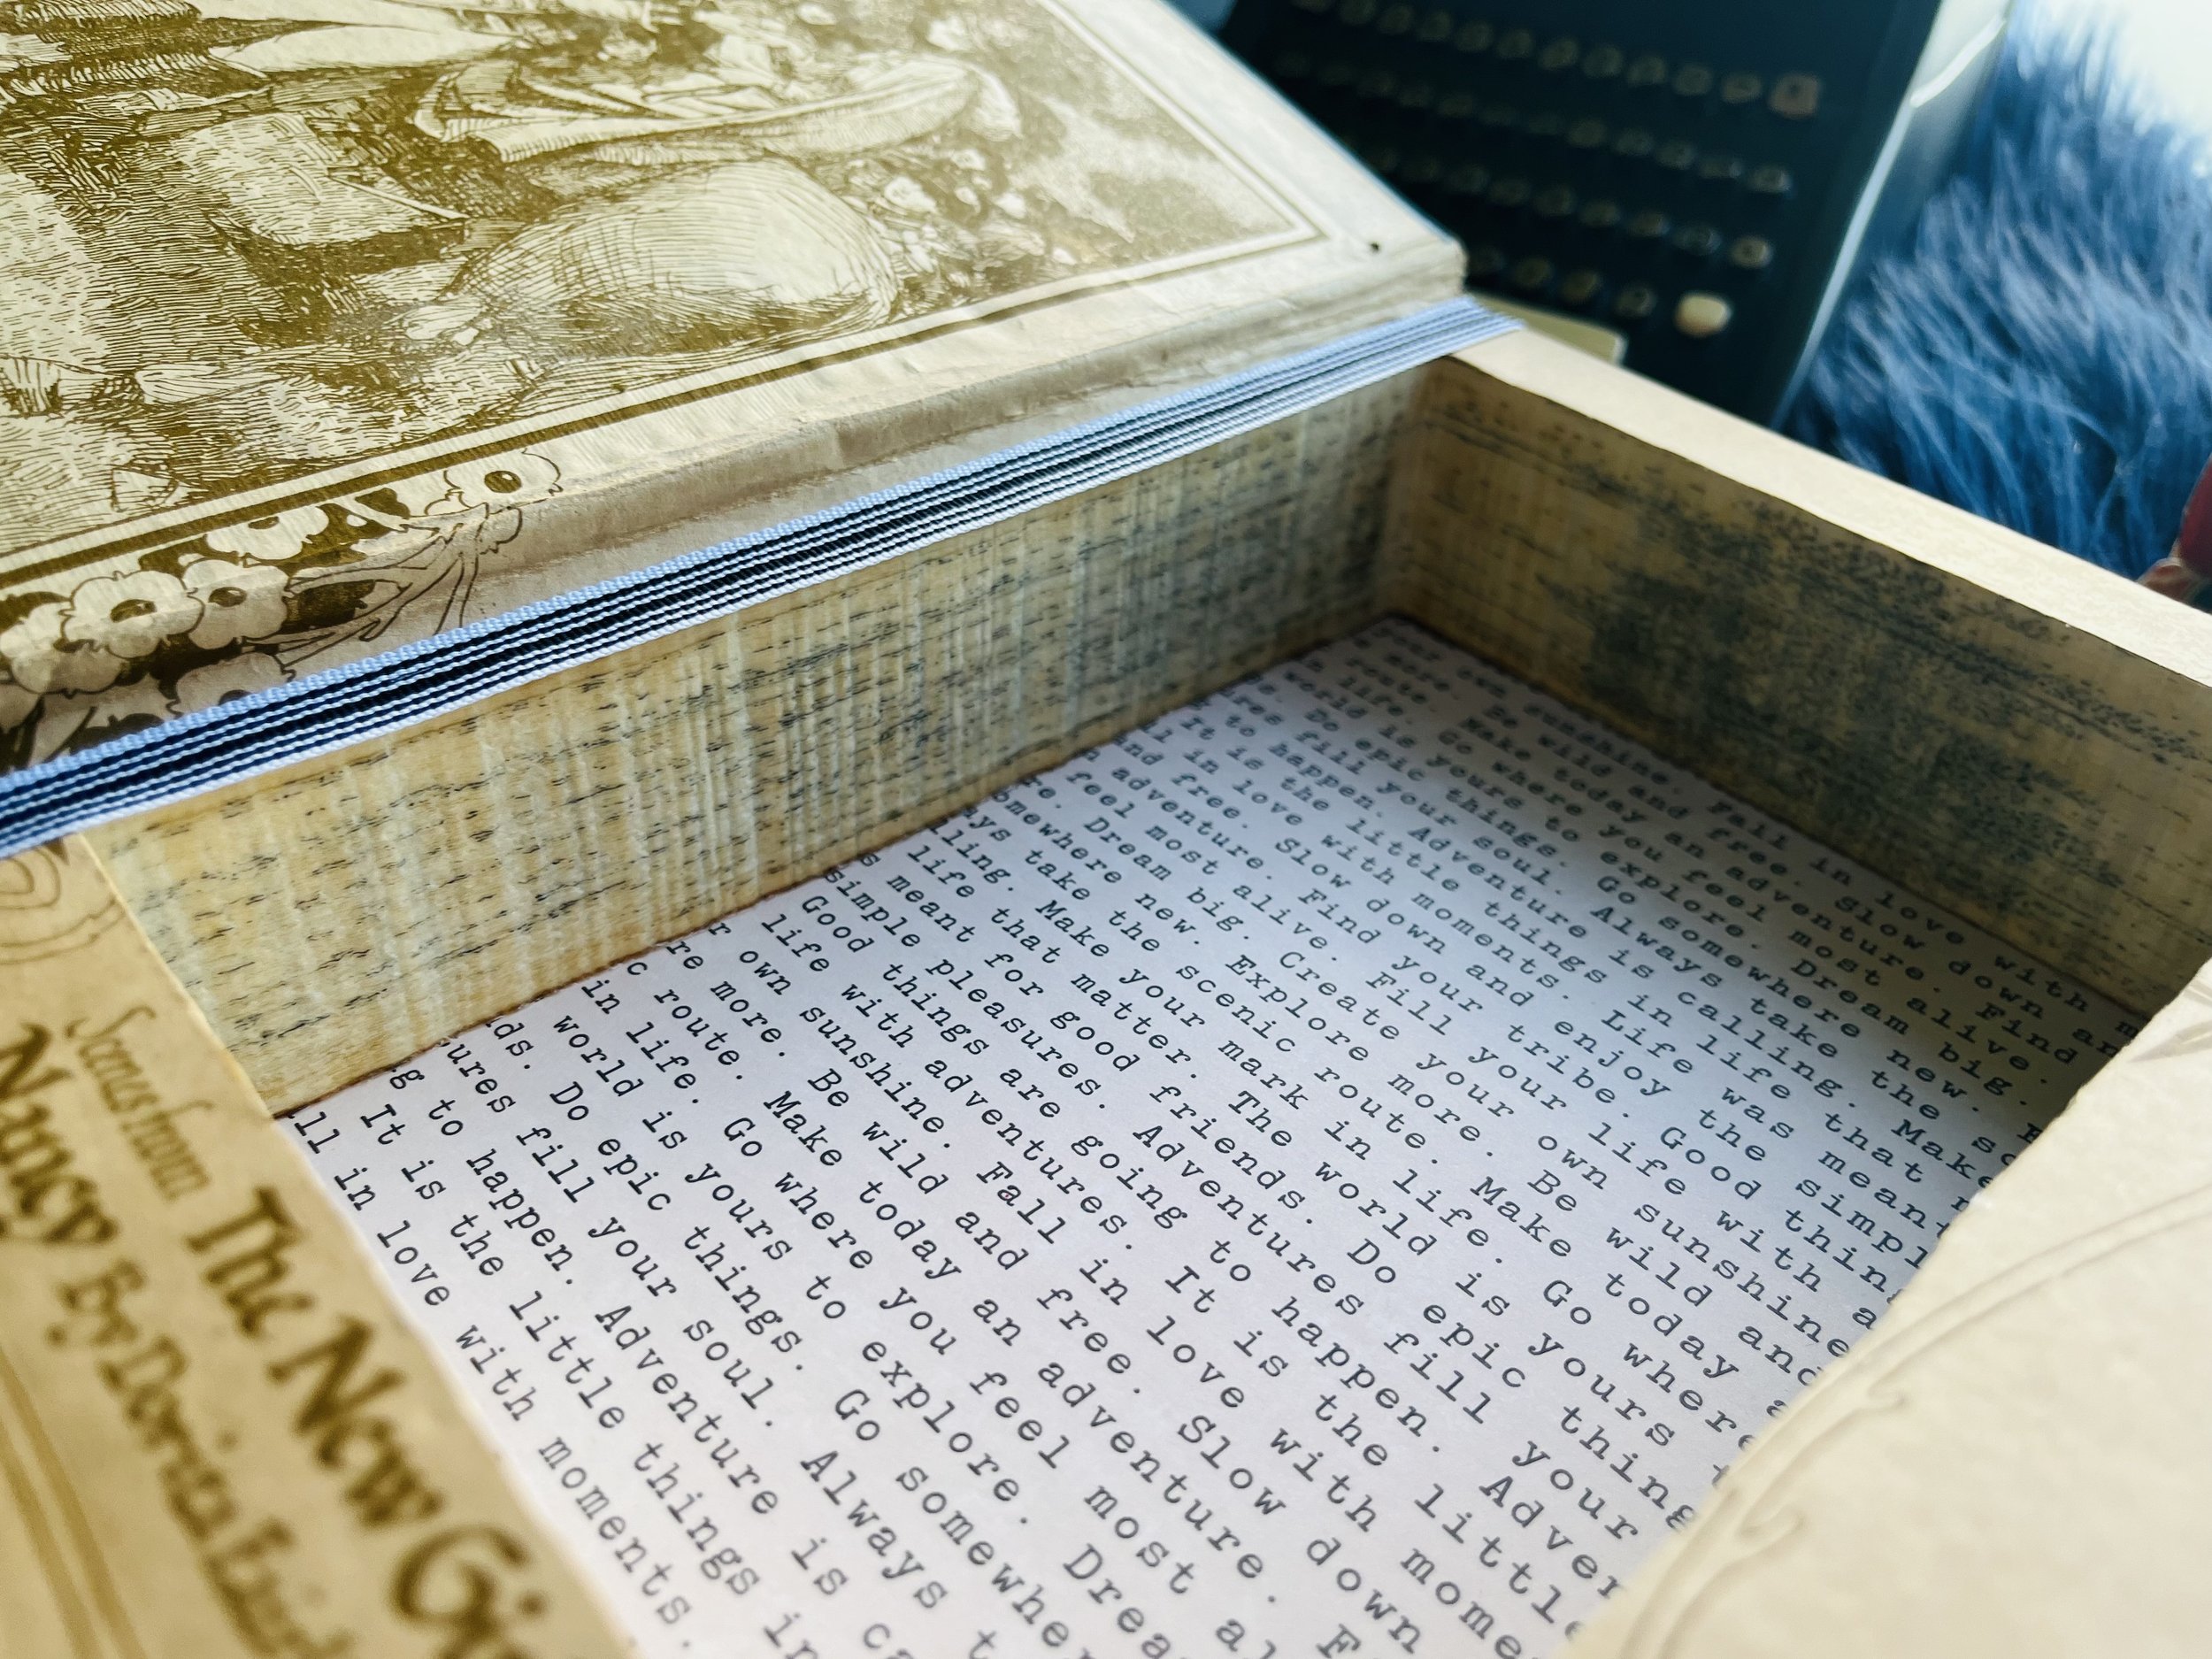 own sunshine. Fall in love with m
more. Be wild and free. Slow down an
route. Make today an adventure. Find
life. Go where you feel most alive.
world is yours to explore. Dream big.
Do epic things. Go somewhere new. E
res fill your soul. Always take the sc
to happen. Adventure is calling. Make
It is the little things in life that m
l in love with moments. Life was meant
nd free. Slow down and enjoy the simpl
adventure. Find your tribe. Good thin
feel most alive. Fill your life with a
re. Dream big. Create your own sunshine
omewhere new. Explore more. Be wild and
ays take the scenic route. Make today a
lling. Make your mark in life. Go where
life that matter. The world is yours t
s meant for good friends. Do epic thing
simple pleasures. Adventures fill your
Good things are going to happen. Adven
life with adventures. It is the little
r own sunshine. Fall in love with mome
re more. Be wild and free. Slow down
c route. Make today an adventure. F
in life. Go where you feel most al
world is yours to explore. Drea
ds. Do epic things. Go somewher
ures fill your soul. Always t
g to happen. Adventure is ca
It is the little things in
ll in love with moments.
Scenes from
The New Gi
Nancy By